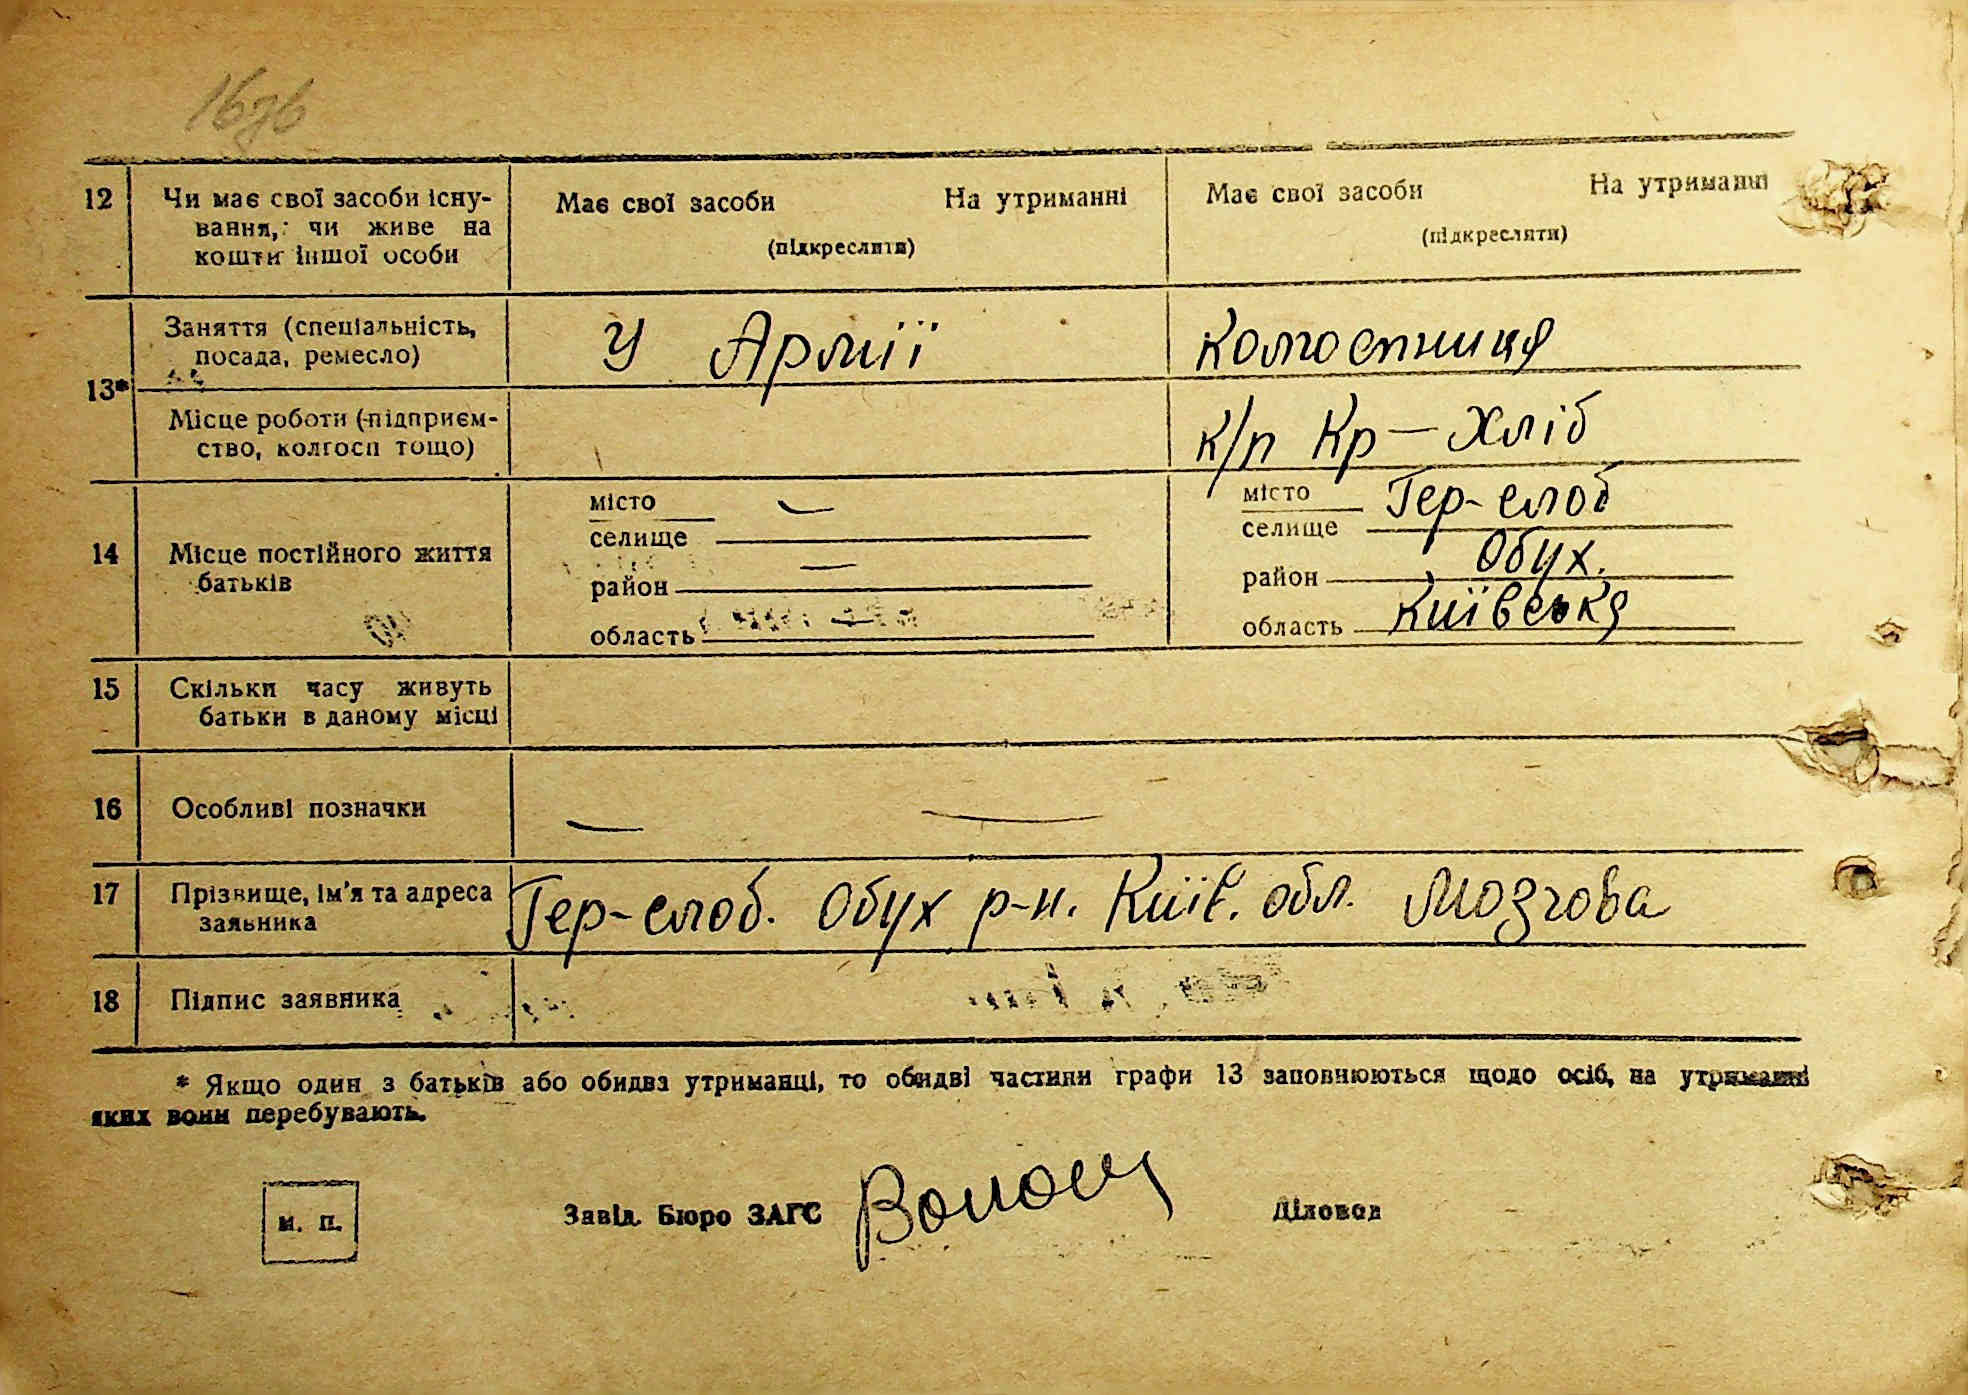 12 Чи має свої засоби існу-
вання, чи живе на
кошти іншої особи
Має свої засоби На утриманні
(підкреслити)
Має свої засоби На утриманні
(підкреслити)
13* Заняття (спеціальність,
посада, ремесло)
У Армії
Колгоспниця
Місце роботи (підприєм-
ство, колгосп тощо)
к/п Кр-Хліб
14 Місце постійного життя
батьків
місто —
селище
район —
область —
місто Гер-слоб
селище
район Обух.
область Київська
15 Скільки часу живуть
батьки в даному місці
16 Особливі позначки — —
17 Прізвище, ім'я та адреса
заявника
Гер-слоб. Обух р-н. Київ. обл. Мозгова
18 Підпис заявника
* Якщо один з батьків або обидва утриманці, то обидві частини графи 13 заповнюються щодо осіб, на утриманні
яких вони перебувають.
м. п.
Завід. Бюро ЗАГС
Діловод